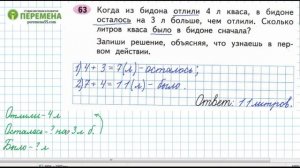 ПЕРЕМЕНА
63
Когда из бидона отлили 4 л кваса, в бидоне
осталось на 3 л больше, чем отлили. Сколько
литров кваса было в бидоне сначала?
Запиши решение, объясняя, что узнаешь в пер-
вом действии.
1) 4 + 3 = 7 (л) - осталось;
2) 7 + 4 = 11 (л) - было.
Ответ: 11 литров.
Отлили - 4 л
Осталось - ? на 3 л б.
Было - ? л